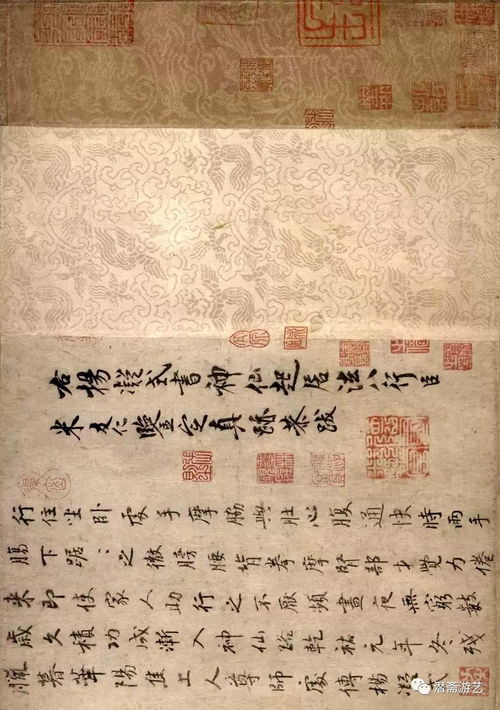 右楊凝式書神仙起居法八行臣
米友仁鑒定真跡恭跋
行住坐卧處手摩脇與肚心腹通快時兩手
腸下踞〻之徹膀腰背拳摩腎部才覺力倦
来即使家人助行之不厭頻晝夜無窮數
歲久積功成漸入神仙路乾祐元年冬殘
臘暮華陽焦上人尊師處傳楊凝式
潜斋游艺